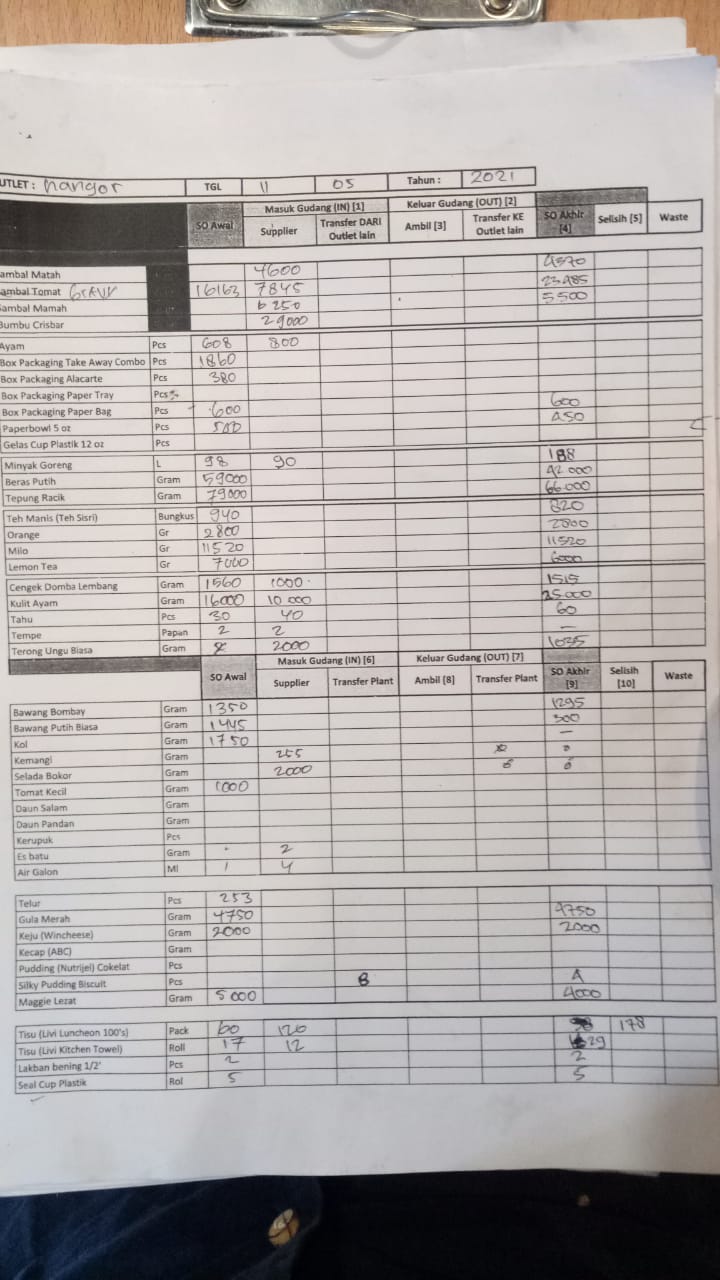 UTLET : nangor TGL 11 05 Tahun : 2021
SO Awal Masuk Gudang (IN) [1] Keluar Gudang (OUT) [2] SO Akhir [4] Selisih [5] Waste
Supplier Transfer DARI Outlet lain Ambil [3] Transfer KE Outlet lain
ambal Matah 4600 4570
ambal Tomat 16163 7845 23485
Sambal Mamah 6250 5500
Bumbu Crisbar 29000
Ayam Pcs 608 800
Box Packaging Take Away Combo Pcs 1860
Box Packaging Alacarte Pcs 380
Box Packaging Paper Tray Pcs
Box Packaging Paper Bag Pcs 600 600
Paperbowl 5 oz Pcs 500 450
Gelas Cup Plastik 12 oz Pcs
Minyak Goreng L 98 90 188
Beras Putih Gram 59000 42000
Tepung Racik Gram 79000 66000
Teh Manis (Teh Sisri) Bungkus 940 820
Orange Gr 2800 2800
Milo Gr 11520 11520
Lemon Tea Gr 7000 6000
Cengek Domba Lembang Gram 1560 1000 1515
Kulit Ayam Gram 16000 10 000 25000
Tahu Pcs 30 40 60
Tempe Papan 2 2 –
Terong Ungu Biasa Gram 2000 1035
SO Awal Masuk Gudang (IN) [6] Keluar Gudang (OUT) [7] SO Akhir [9] Selisih [10] Waste
Supplier Transfer Plant Ambil [8] Transfer Plant
Bawang Bombay Gram 1350 1295
Bawang Putih Biasa Gram 1445 300
Kol Gram 1750 –
Kemangi Gram 255
Selada Bokor Gram 2000
Tomat Kecil Gram 1000
Daun Salam Gram
Daun Pandan Gram
Kerupuk Pcs
Es batu Gram 2
Air Galon Ml 1 4
Telur Pcs 253
Gula Merah Gram 4750 4750
Keju (Wincheese) Gram 2000 2000
Kecap (ABC) Gram
Pudding (Nutrijel) Cokelat Pcs
Silky Pudding Biscuit Pcs 8 4
Maggie Lezat Gram 5000 4000
Tisu (Livi Luncheon 100's) Pack 60 120 178
Tisu (Livi Kitchen Towel) Roll 17 12 29
Lakban bening 1/2' Pcs 2 2
Seal Cup Plastik Rol 5 5